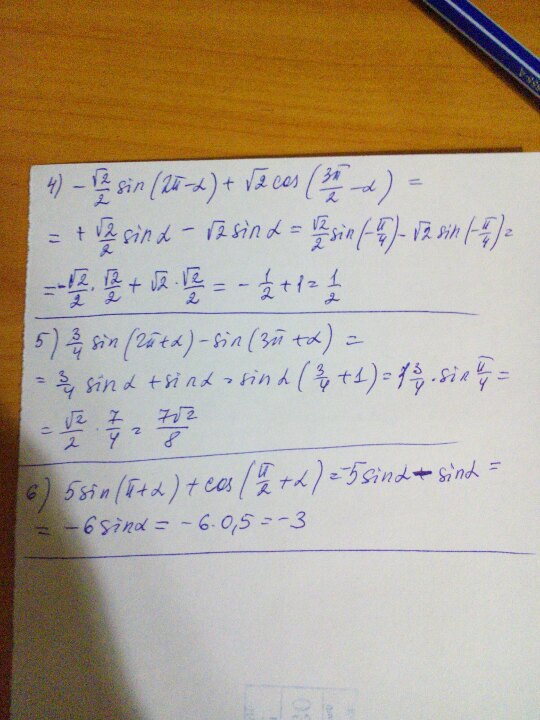 4) -√2/2 sin(2π-α) + √2 cos(3π/2 - α) =
= + √2/2 sin α - √2 sin α = √2/2 sin(-π/4) - √2 sin(-π/4) =
= -√2/2 · √2/2 + √2 · √2/2 = - 1/2 + 1 = 1/2
5) 3/4 sin(2π+α) - sin(3π+α) =
= 3/4 sin α + sin α = sin α (3/4 + 1) = 1 3/4 · sin π/4 =
= √2/2 · 7/4 = 7√2/8
6) 5 sin(π+α) + cos(π/2 + α) = -5 sin α - sin α =
= -6 sin α = -6 · 0,5 = -3